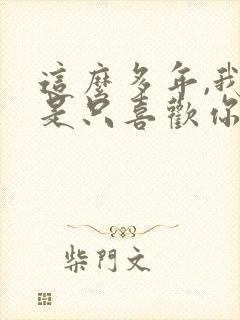 這麼多年,我
是只喜歡你
柴門文